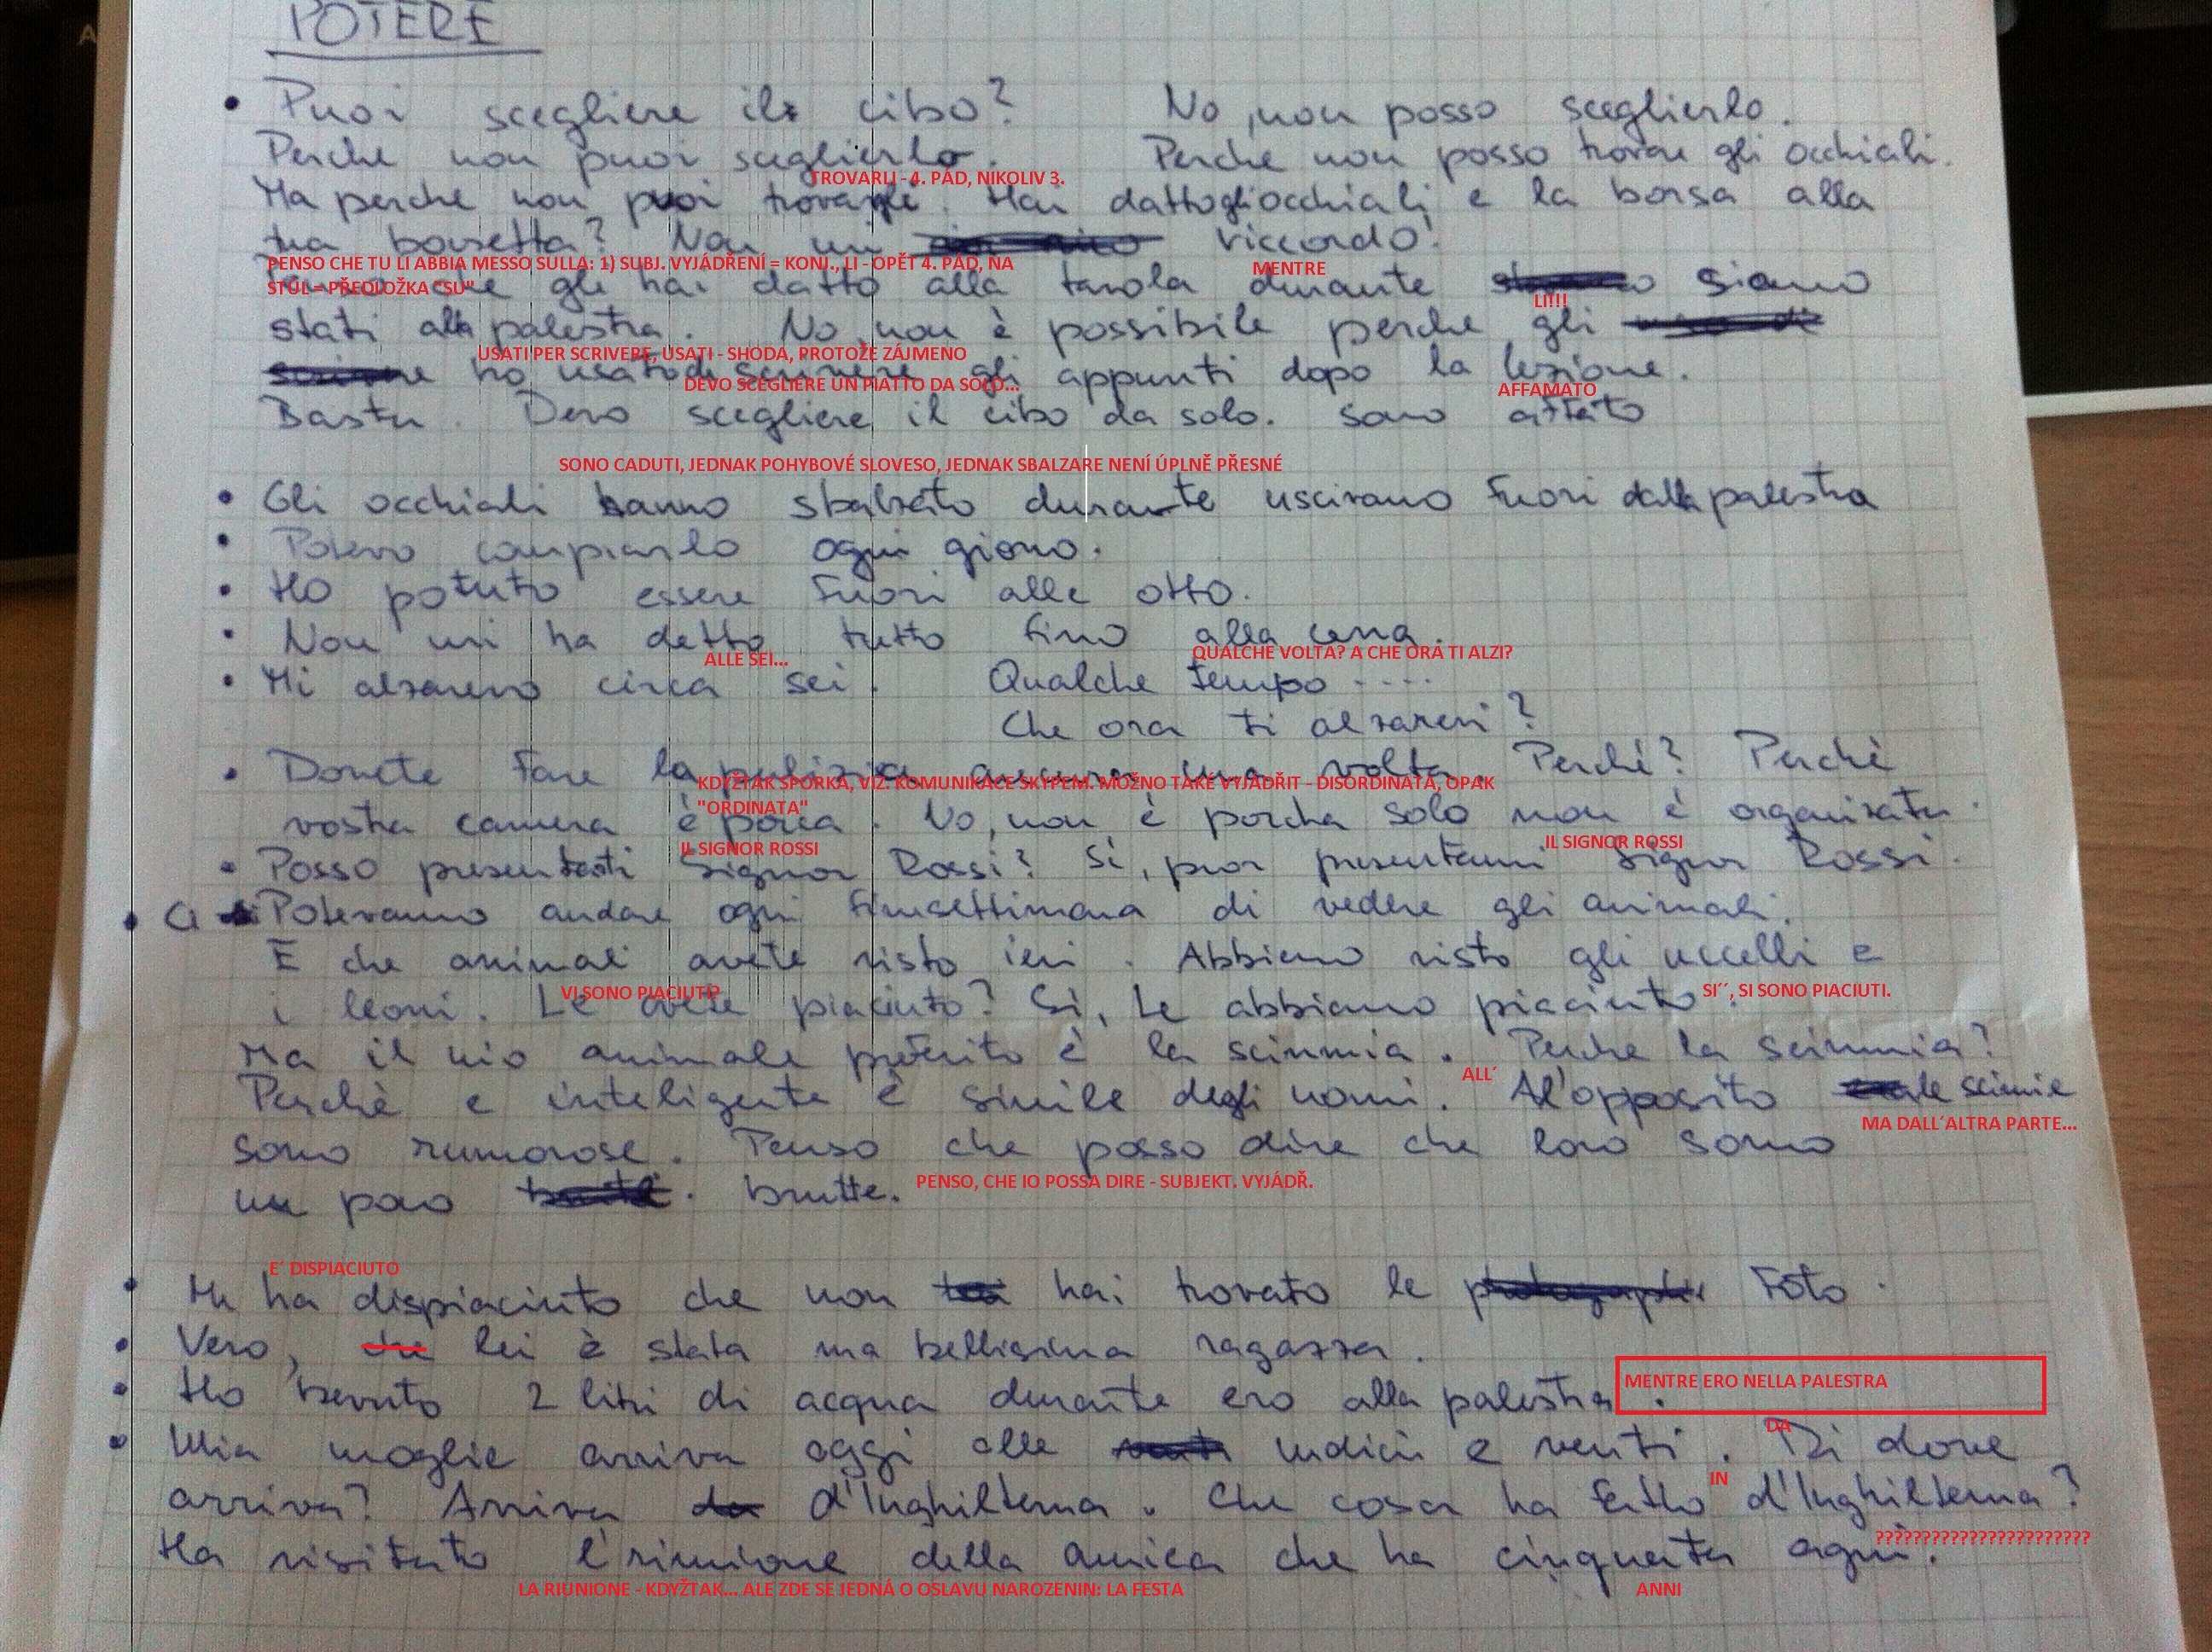 POTERE
• Puoi scegliere il cibo? No, non posso sceglierlo.
Perche non puoi sceglierlo. Perche non posso trovare gli occhiali.
TROVARLI - 4. PÁD, NIKOLIV 3.
Ma perche non puoi trovargli. Hai datto gli occhiali e la borsa alla
tua borsetta? Non mi riccordo!
PENSO CHE TU LI ABBIA MESSO SULLA: 1) SUBJ. VYJÁDŘENÍ = KONJ., LI - OPĚT 4. PÁD, NA
MENTRE
STŮL = PŘEDLOŽKA "SU"
che gli hai datto alla tavola durante siamo
LI!!!
stati alla palestra. No, non è possibile perche gli
USATI PER SCRIVERE, USATI - SHODA, PROTOŽE ZÁJMENO
ho usato di scrivere gli appunti dopo la lezione.
DEVO SCEGLIERE UN PIATTO DA SOLO...
AFFAMATO
Basta. Devo scegliere il cibo da solo. Sono
SONO CADUTI, JEDNAK POHYBOVÉ SLOVESO, JEDNAK SBALZARE NENÍ ÚPLNĚ PŘESNÉ
• Gli occhiali hanno sbalzato durante uscivano fuori dalla palestra
• Potevo comprarlo ogni giorno.
• Ho potuto essere fuori alle otto.
• Non mi ha detto tutto fino alla cena.
ALLE SEI... QUALCHE VOLTA? A CHE ORA TI ALZI?
• Mi alzarevo circa sei. Qualche tempo ....
Che ora ti alzarevi?
• Dovete fare la pulizia ancora una volta. Perché? Perchè
KDYŽTAK SPORKA, VIZ. KOMUNIKACE SKYPEM. MOŽNO TAKÉ VYJÁDŘIT - DISORDINATA, OPAK
"ORDINATA"
vostra camera è porca. No, non è porcha solo non è organizata.
IL SIGNOR ROSSI IL SIGNOR ROSSI
• Posso presentarti Signor Rossi? Sì, puoi presentarmi Signor Rossi.
• Ci Potevamo andare ogni finesettimana di vedere gli animali.
E che animali avete visto ieri. Abbiamo visto gli uccelli e
VI SONO PIACIUTI? SI´´, SI SONO PIACIUTI.
i leoni. Le avete piaciuto? Sì, Le abbiamo piaciuto.
Ma il mio animale preferito è la scimmia. Perche la scimmia?
ALL´
Perchè e inteligente è simile degli uomi. Al'opposito le scimie
MA DALL´ALTRA PARTE...
sono rumorose. Penso che posso dire che loro sono
PENSO, CHE IO POSSA DIRE - SUBJEKT. VYJÁDŘ.
un poco brutte.
E´ DISPIACIUTO
• Mi ha dispiaciuto che non hai trovato le foto.
• Vero, lei è stata una bellisima ragazza.
MENTRE ERO NELLA PALESTRA
• Ho bevuto 2 litri di acqua durante ero alla palestra.
DA
• Mia moglie arriva oggi alle undici e venti. Di dove
IN
arriva? Arriva d'Inghilterra. Che cosa ha fatto d'Inghilterra?
??????????????????????
Ha visitato della amica che ha cinquanta agni.
LA RIUNIONE - KDYŽTAK... ALE ZDE SE JEDNÁ O OSLAVU NAROZENIN: LA FESTA ANNI